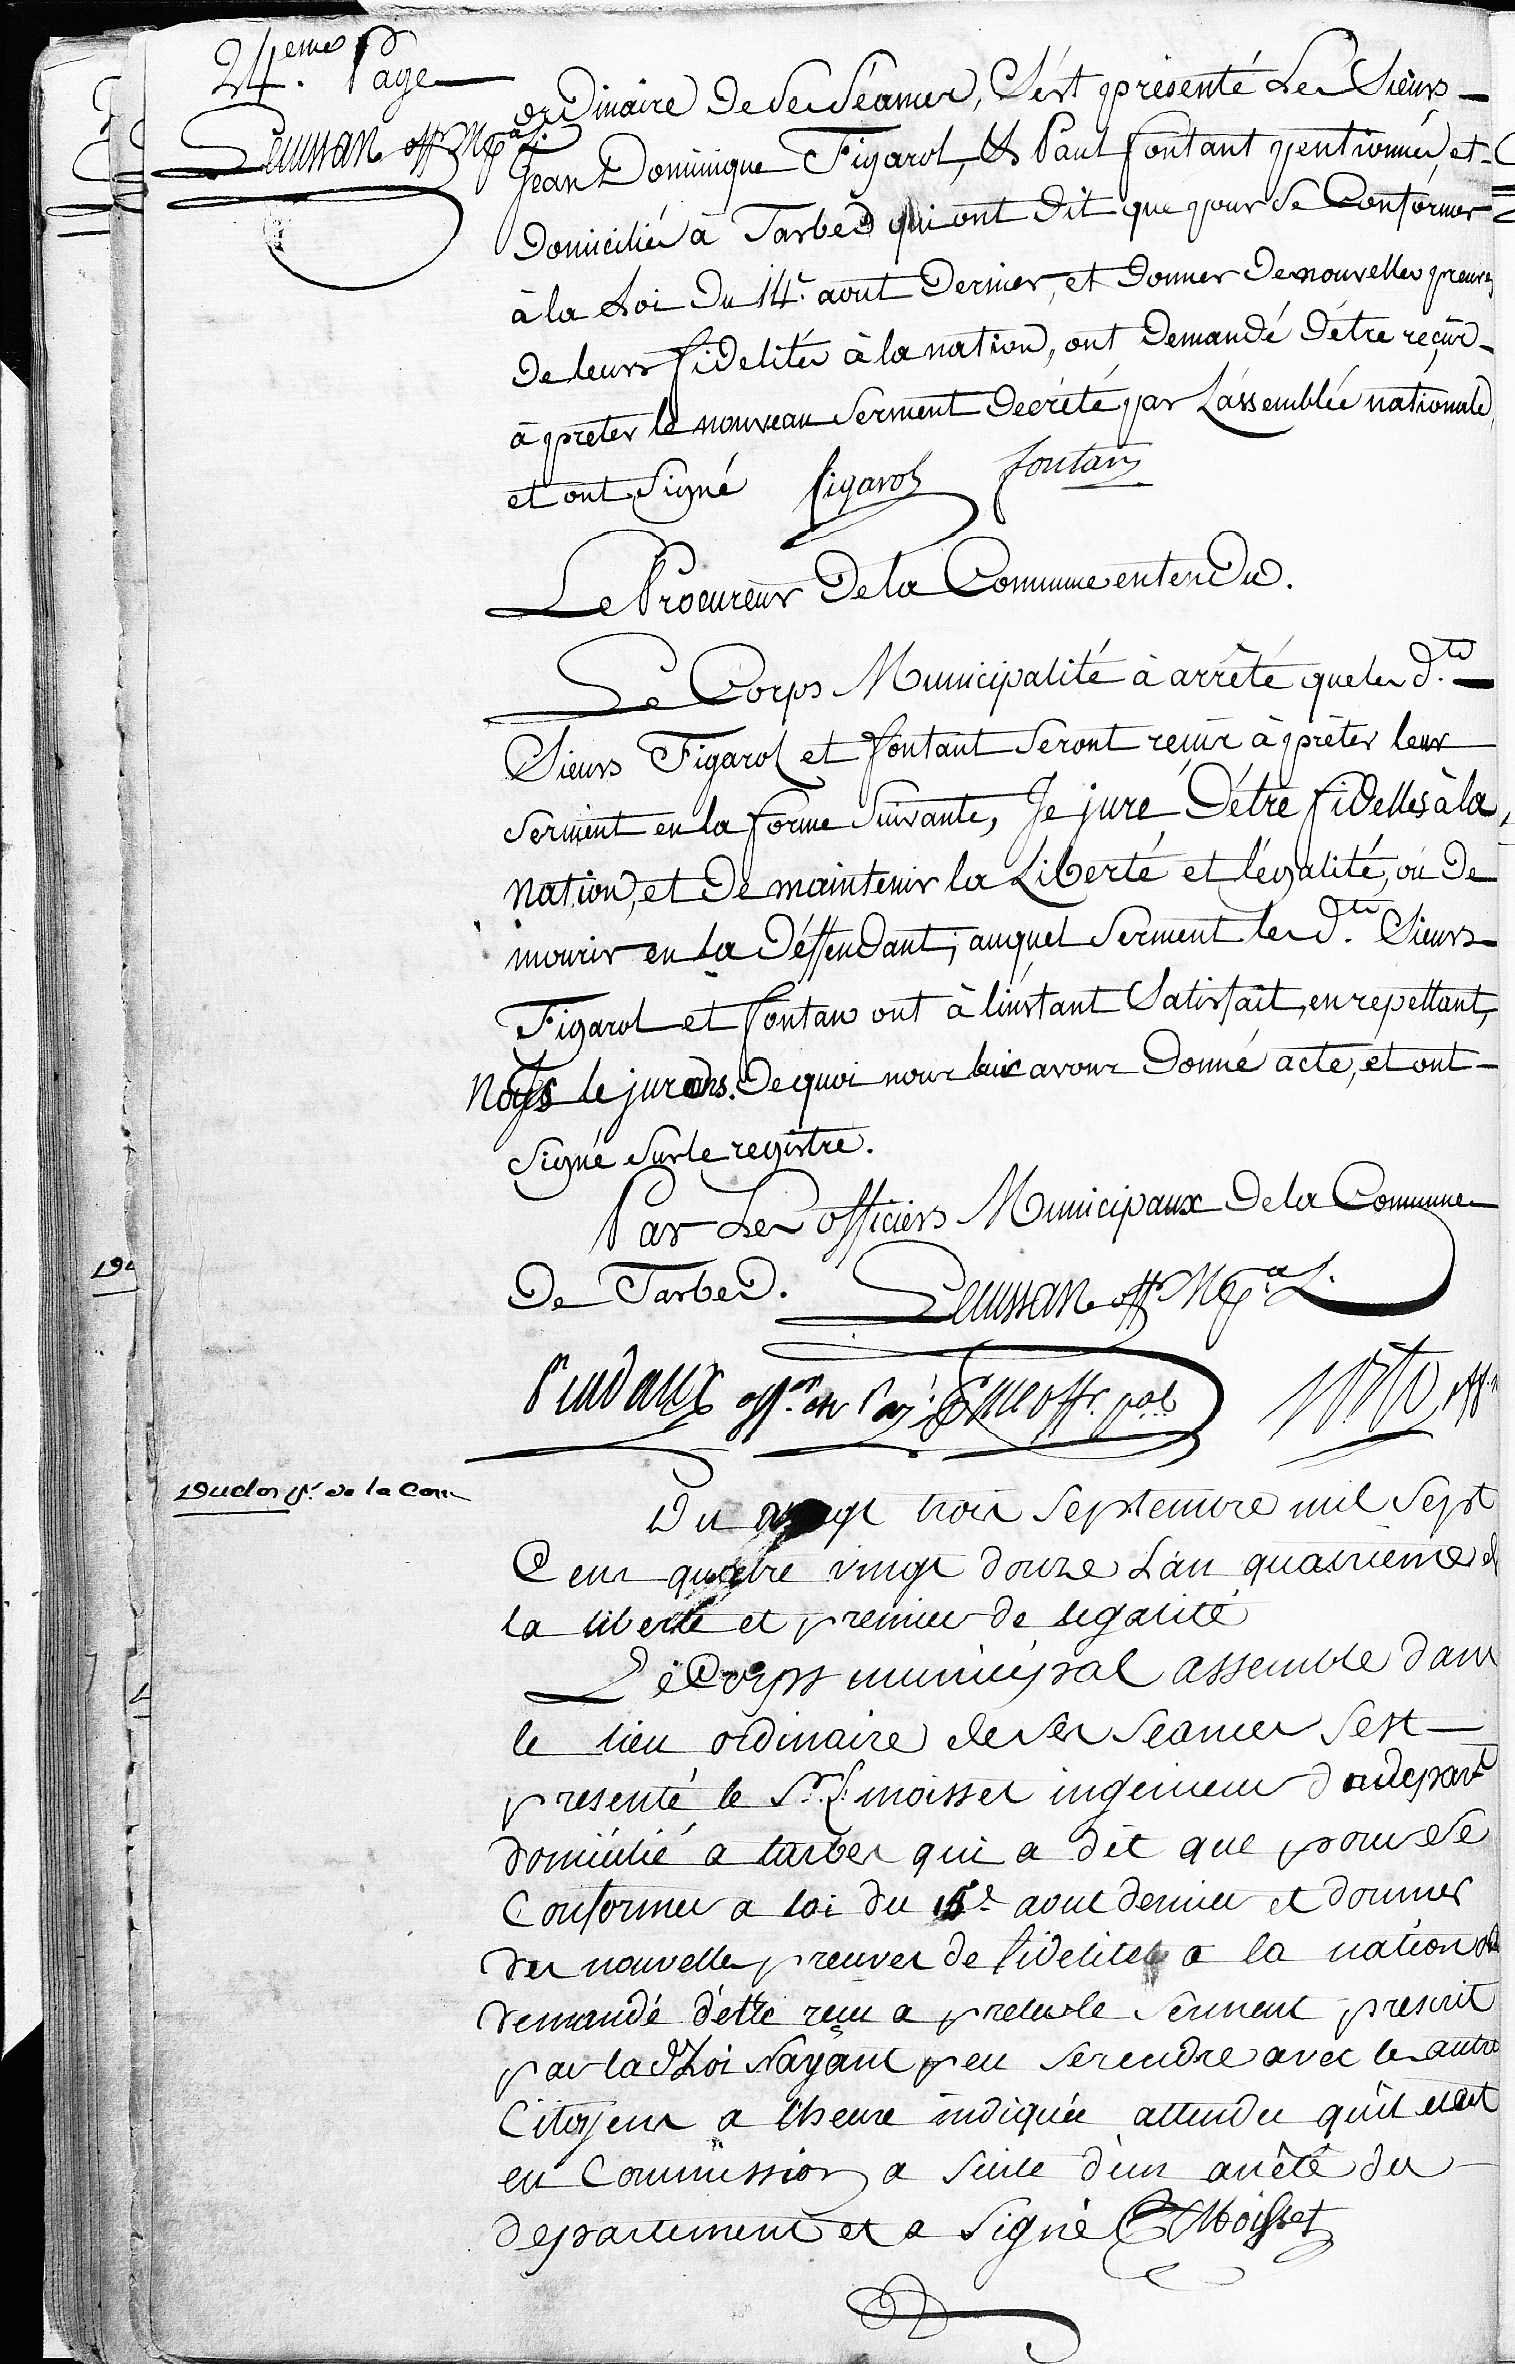 24.eme Page
off. Mpal
ordinaire de ses séances, S'est présenté Les Sieurs
Jean Dominique Figarol, et Paul fontant pentionnés et
Domiciliés à Tarbes qui ont dit que pour se Conformer
à la Loi du 14.e aout Dernier, et donner de nouvelles preuves
de leurs fidelités à la nation, ont demandé d'étre reçus
à prêter le nouveau serment decrété par L'assemblée nationale,
et ont signé figarol fontan
Le Procureur de la Commune entendu.
Le Corps Municipalité à arrêté que les d.ts
Sieurs Figarol et fontant seront reçus à prêter leur
serment en la forme suivante, Je jure d'étre fidelles à la
nation, et de maintenir la Liberté et l'égalité, ou de
mourir en la déffendant; auquel serment les d.ts Sieurs
Figarol et fontan ont à l'instant satisfait, en repettant,
nous le jurons. De quoi nous avons donné acte, et ont
signé sur le registre.
Par Les officiers Municipaux de la Commune
De Tarbes. off. Mpal
off. pal
Duclos pr. de la Com
Du vingt trois septembre mil sept
Cent quatre vingt douze L'an quatrieme de
la liberté et premier de legalité
Le Corps municipal assemblé dans
le lieu ordinaire de ses seances sest
presenté le Sr. L. moisset ingenieur du depart
domicilié a tarbes qui a dit que pour se
Conformer a loi du 15e aout dernier et donner
des nouvelles preuves de fidelités a la nation a
demandé d'être reçu a preter le serment prescrit
par la d Loi nayant peu se rendre avec les autres
Citoyens a lheure indiquée attendu qu'il etait
en Commission a suite d'un arrêté du
departement et a signé Moisset